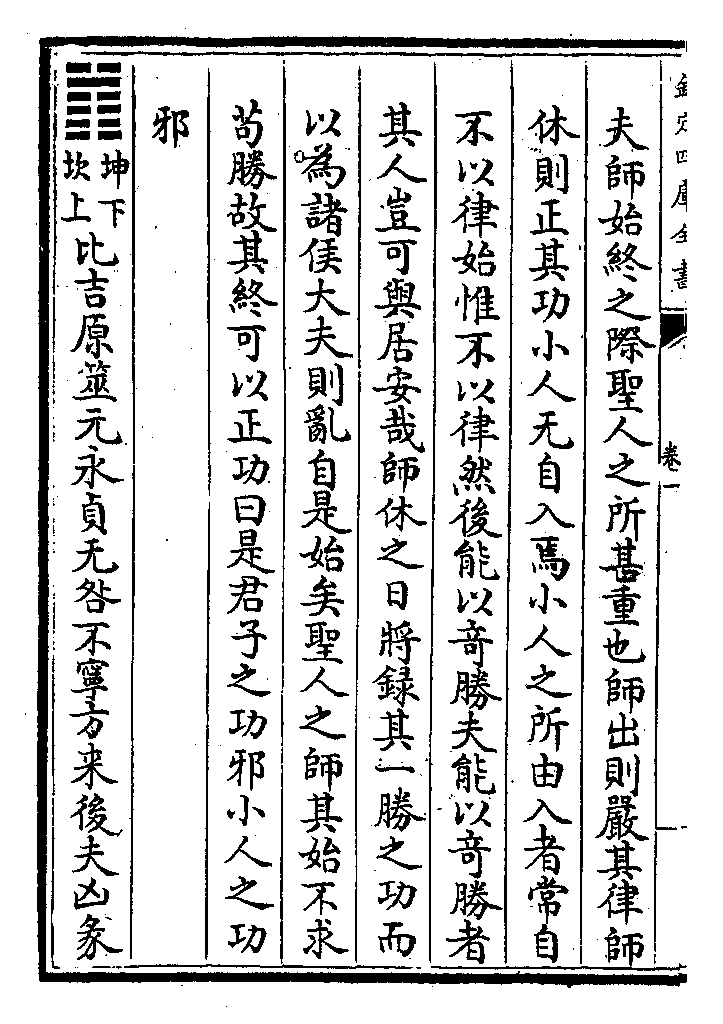 欽定四庫全書
卷一
夫師始終之際聖人之所甚重也師出則嚴其律師
休則正其功小人无自入焉小人之所由入者常自
不以律始惟不以律然後能以竒勝夫能以竒勝者
其人豈可與居安哉師休之日將録其一勝之功而
以為諸侯大夫則亂自是始矣聖人之師其始不求
茍勝故其終可以正功曰是君子之功邪小人之功
邪
䷇坤下坎上比吉原筮元永貞无咎不寧方来後夫凶彖